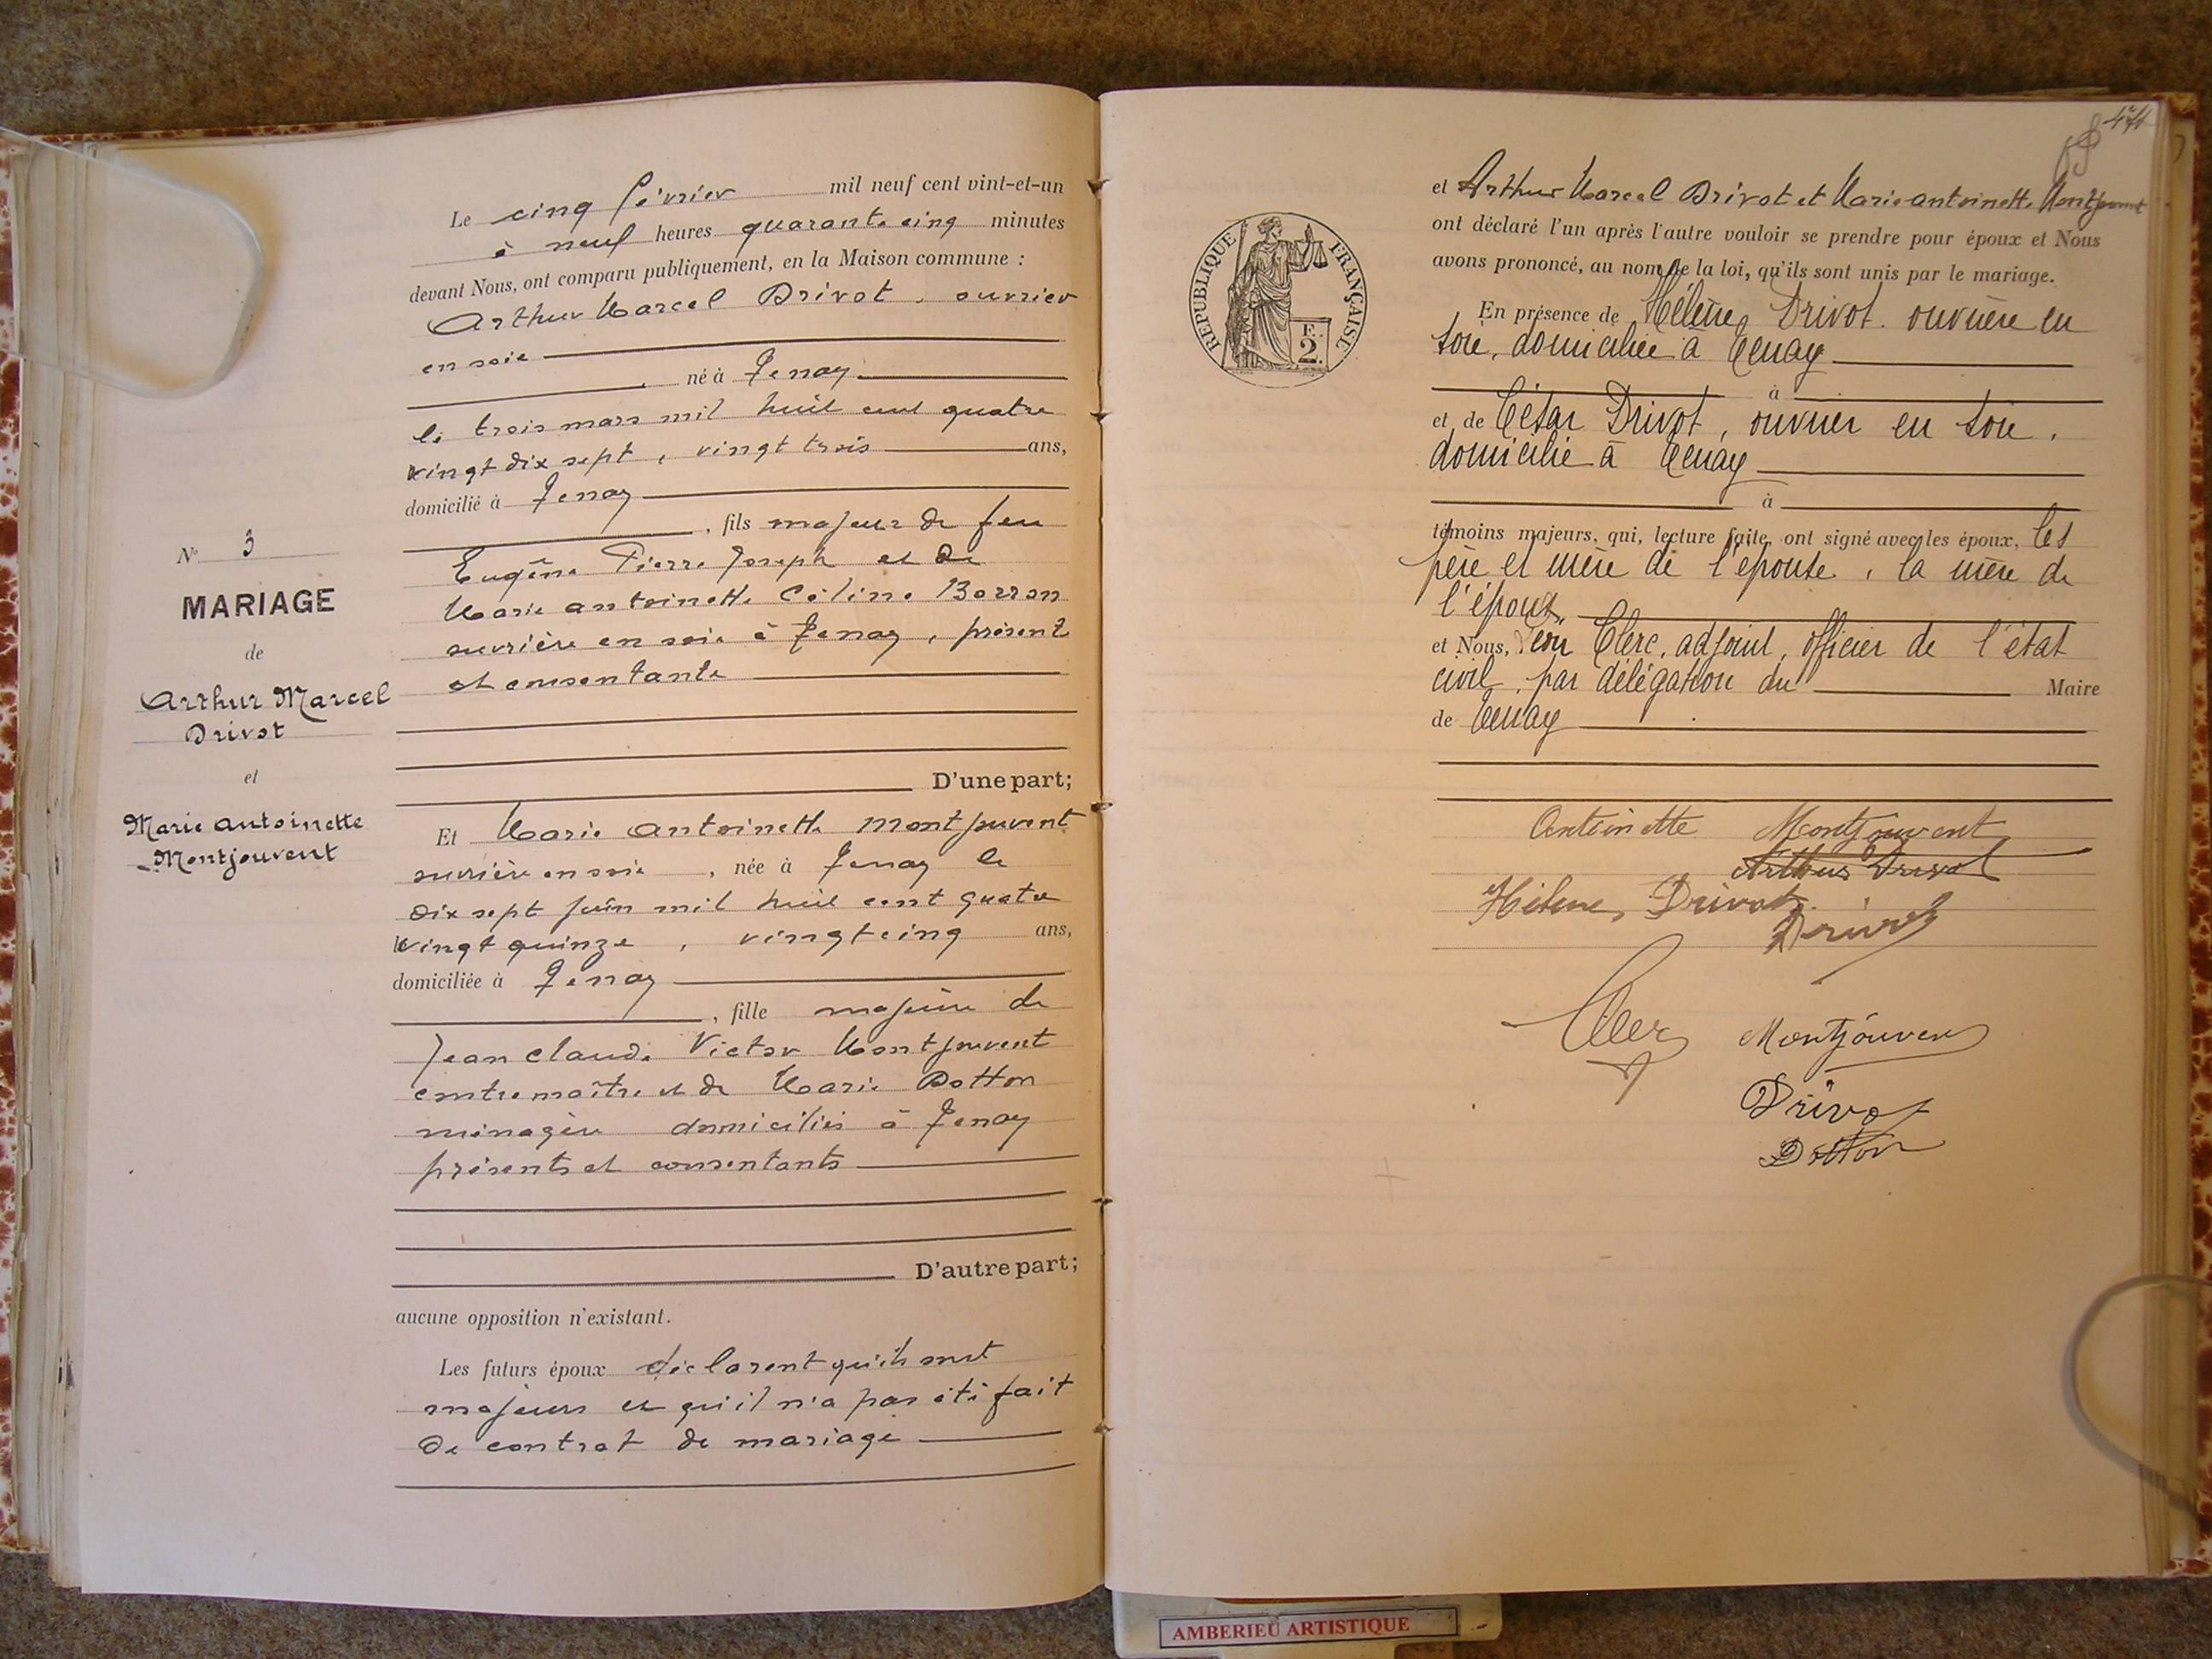 Le cinq février mil neuf cent vint-et-un
à neuf heures quarante cinq minutes
devant Nous, ont comparu publiquement, en la Maison commune :
Arthur Marcel Drivot, ouvrier
en soie
né à Tenay
le trois mars mil huit cent quatre
vingt dix sept, vingt trois ans,
domicilié à Tenay
, fils majeur de feu
Eugène Pierre Joseph et de
Marie antoinette Céline Borron
ouvrière en soie à Tenay, présent
et consentante
D'une part;
N° 3
MARIAGE
de
Arthur Marcel
Drivot
et
Marie Antoinette
Montjouvent
Et Marie Antoinette Montjouvent
ouvrière en soie, née à Tenay le
dix sept juin mil huit cent quatre
vingt quinze, vingt cinq ans,
domiciliée à Tenay
, fille majeure de
Jean Claude Victor Montjouvent
contremaître et de Marie Dotton
ménagère domiciliés à Tenay
présents et consentants
D'autre part;
aucune opposition n'existant.
Les futurs époux déclarent qu'ils sont
majeurs et qu'il n'a pas été fait
de contrat de mariage
471
et Arthur Marcel Drivot et Marie antoinette Montjouvent
ont déclaré l'un après l'autre vouloir se prendre pour époux et Nous
avons prononcé, au nom de la loi, qu'ils sont unis par le mariage.
REPUBLIQUE FRANÇAISE
F.
2.
En présence de Hélène Drivot. ouvrière en
soie, domiciliée à Tenay
à
et de César Drivot, ouvrier en soie,
domicilié à Tenay
à
témoins majeurs, qui, lecture faite, ont signé avec les époux, les
père et mère de l'épouse, la mère de
l'époux
et Nous, Léon Clerc, adjoint, officier de l'état
civil, par délégation du Maire
de Tenay
Antoinette Montjouvent
Arthur Drivot
Hélène Drivot
Drivot
Clerc Montjouvent
Drivot
Dotton
AMBERIEU ARTISTIQUE